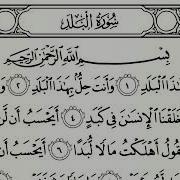 سُورَةُ الْبَلَدِ
بِسْمِ اللَّهِ الرَّحْمَٰنِ الرَّحِيمِ
هَٰذَا الْبَلَدِ ۝١ وَأَنتَ حِلٌّ بِهَٰذَا الْبَلَدِ ۝٢
خَلَقْنَا الْإِنسَٰنَ فِي كَبَدٍ ۝٤ أَيَحْسَبُ أَن
يَقُولُ أَهْلَكْتُ مَالًا لُّبَدًا ۝٦ أَيَحْسَبُ